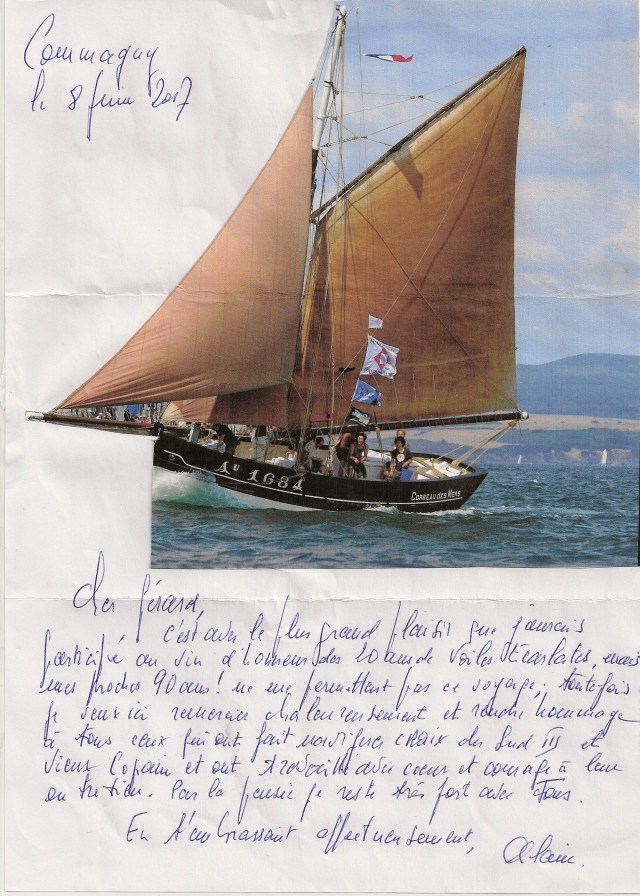 Commagny
le 8 juin 2017
AU 1684
CORBEAU DES MERS
Cher Gérard,
c'est avec le plus grand plaisir que j'aurais
participé au vin d'honneur des 20 ans de Voiles Écarlates, mais
mes proches 90 ans! ne me permettent pas ce voyage; toutefois
je veux ici remercier chaleureusement et rendre hommage
à tous ceux qui ont fait naviguer CROIX du Sud III et
Vieux Copain et ont travaillé avec coeur et courage à leur
entretien. Par la pensée je reste très fort avec Tous.
En t'embrassant affectueusement,
Alain.